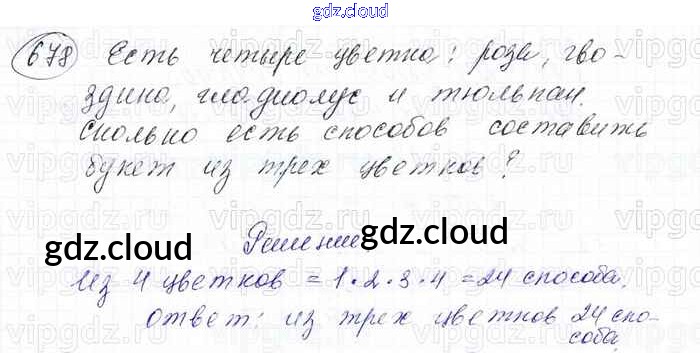 gdz.cloud
678 Есть четыре цветка: роза, гво-
здика, гладиолус и тюльпан.
Сколько есть способов составить
букет из трех цветков?
Решение
gdz.cloud gdz.cloud
Из 4 цветков = 1·2·3·4 = 24 способа.
ответ: из трех цветков 24 спо-
соба.